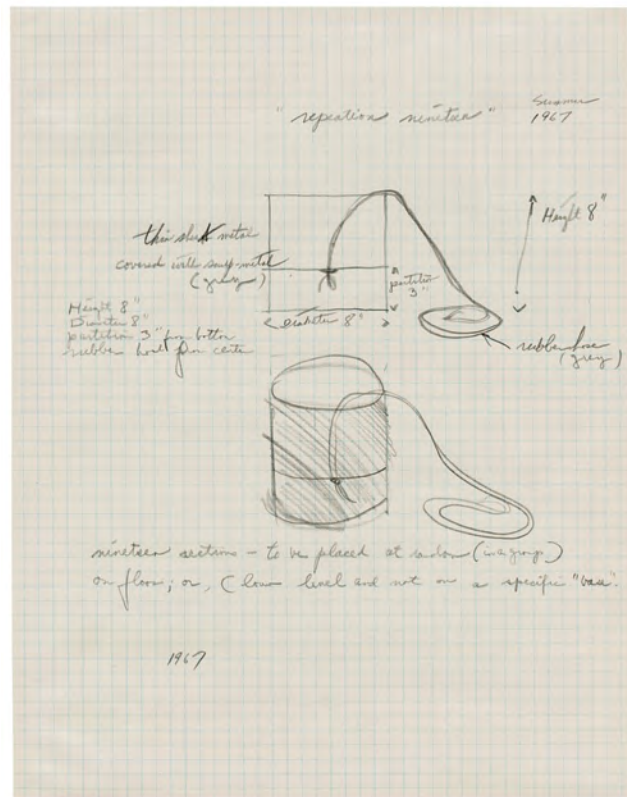 "repeation nineteen"
Summer
1967
Height 8"
thin sheet metal
covered with sculp-metal
(grey)
partition
3"
diameter 8"
Height 8"
Diameter 8"
partition 3" from bottom
rubber from center
rubber hose
(grey)
nineteen sections - to be placed at random (in a group)
on floor; or, (low level and not on a specific "base".
1967